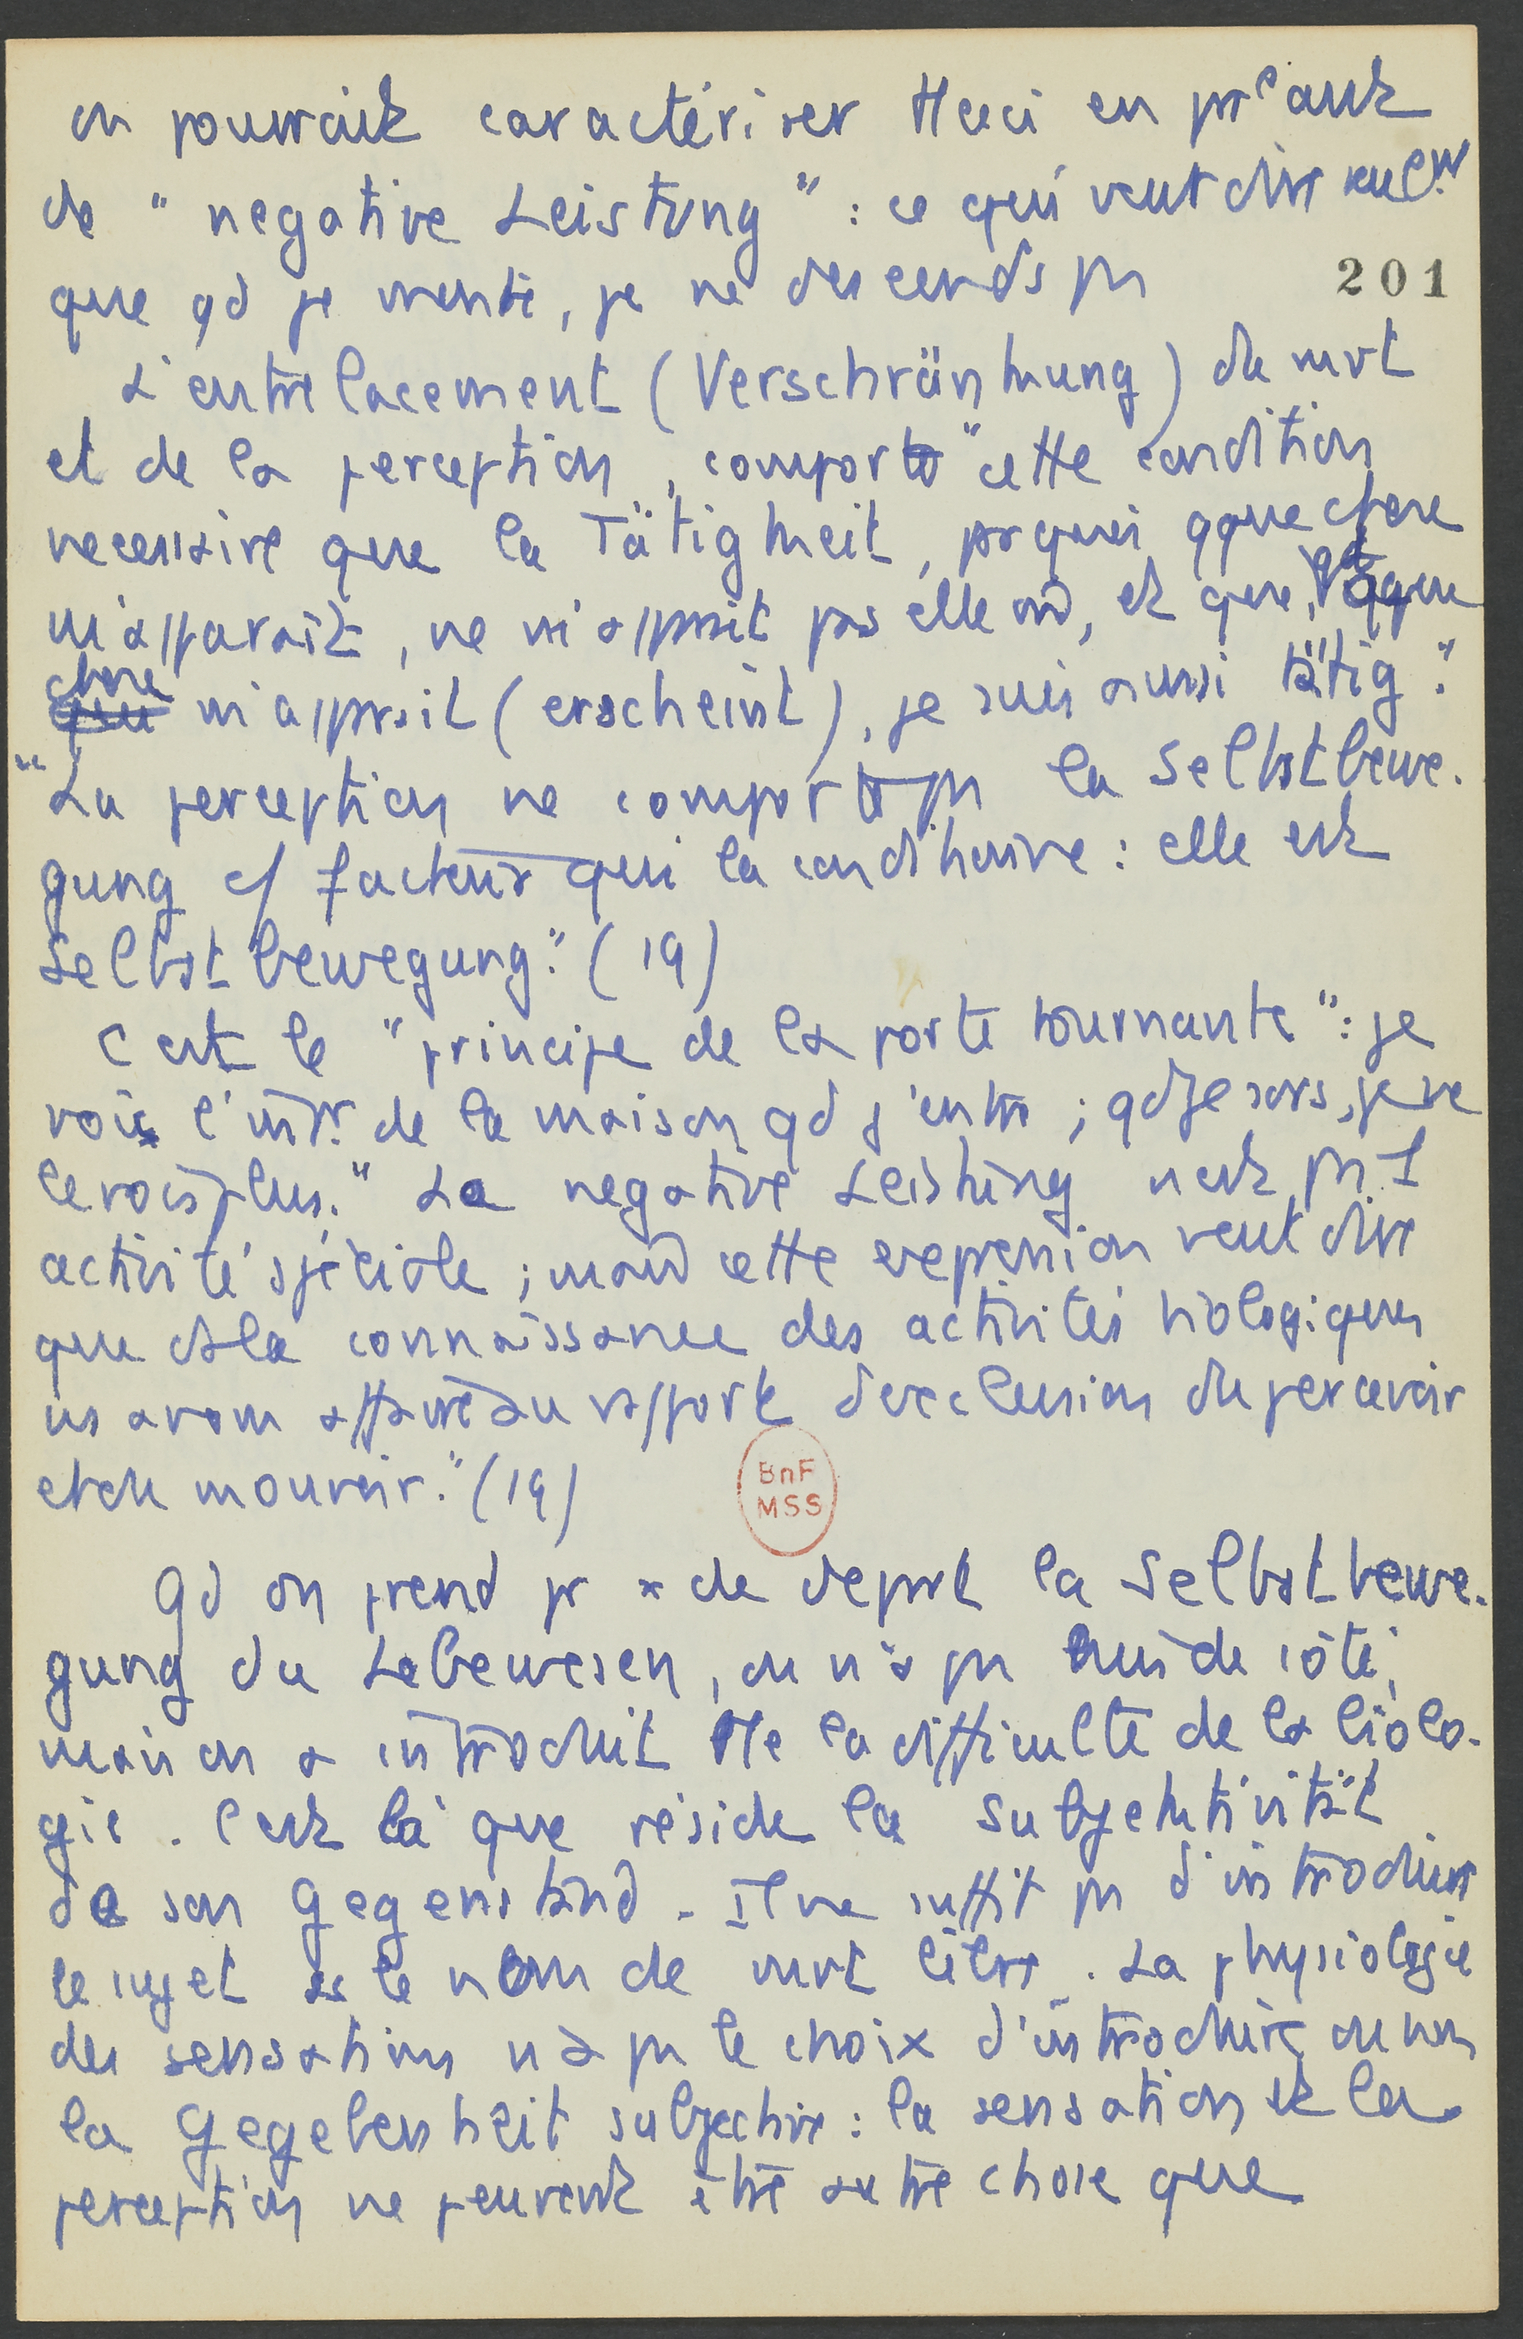 on pourrait caractériser tt ceci en prlant
de "negative Leistung" : ce qui veut dire seulemt
que qd je monte, je ne descends pas
201
L'entrelacement (Verschränkung) du mvt
et de la perception, "comporte cette condition
necessaire que la Tätigkeit, pr quoi qque chose
m'apparaît, ne m'apprait pas elle mm, et que, qd qque
chose m'apprait (erscheint), je suis aussi tätig."
"La perception ne comporte pas la Selbstbewe-
gung c/ facteur qui la conditionne : elle est
Selbstbewegung." (19)
C'est le "principe de la porte tournante" : je
vois l'intr. de la maison qd j'entre ; qd je sors, je ne
le vois plus." La negative Leistung n'est pas 1
activité spéciale ; mais cette expression veut dire
que ds la connaissance des activités biologiques
ns avons affaire au rapport d'exclusion du percevoir
et du mouvoir." (19)
BnF
MSS
Qd on prend pr x de deprt la Selbstbewe-
gung du Lebewesen, on n'a pas mis de côté,
mais on a introduit tte la difficulté de la biolo-
gie. C'est là que réside la Subjektivität
de son Gegenstand. Il ne suffit pas d'introduire
le sujet ss le nom de mvt libre. La physiologie
des sensations n'a pas le choix d'introduire ou non
la Gegebenheit subjective : la sensation et la
perception ne peuvent être autre chose que